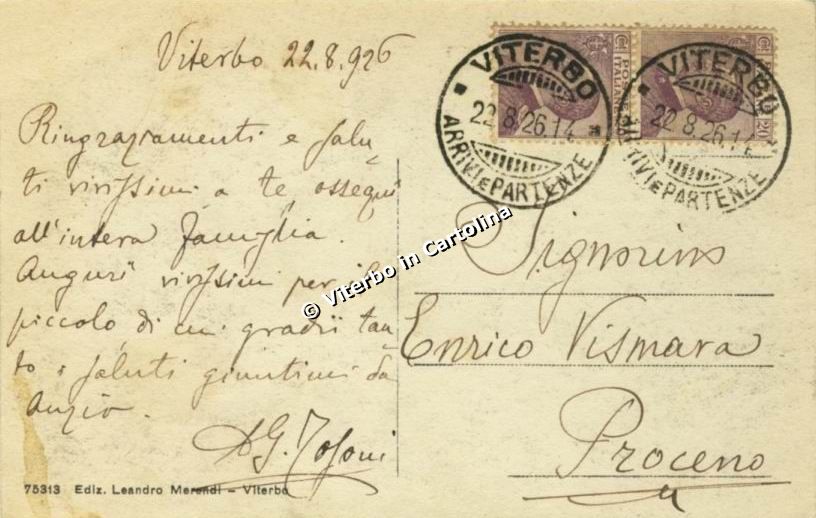 Viterbo 22.8.926
Ringraziamenti e salu-
ti vivissimi a te ossequi
all'intera famiglia.
Auguri vivissimi per il
piccolo di cui gradii tan-
to i saluti giuntimi da
Anzio.
DG. Tosoni
75313 Ediz. Leandro Merendi – Viterbo
CENT 20
POSTE ITALIANE
VITERBO
22.8.26.14
ARRIVI E PARTENZE
VITERBO
22.8.26.14
ARRIVI E PARTENZE
© Viterbo in Cartolina
Signorino
Enrico Vismara
Proceno